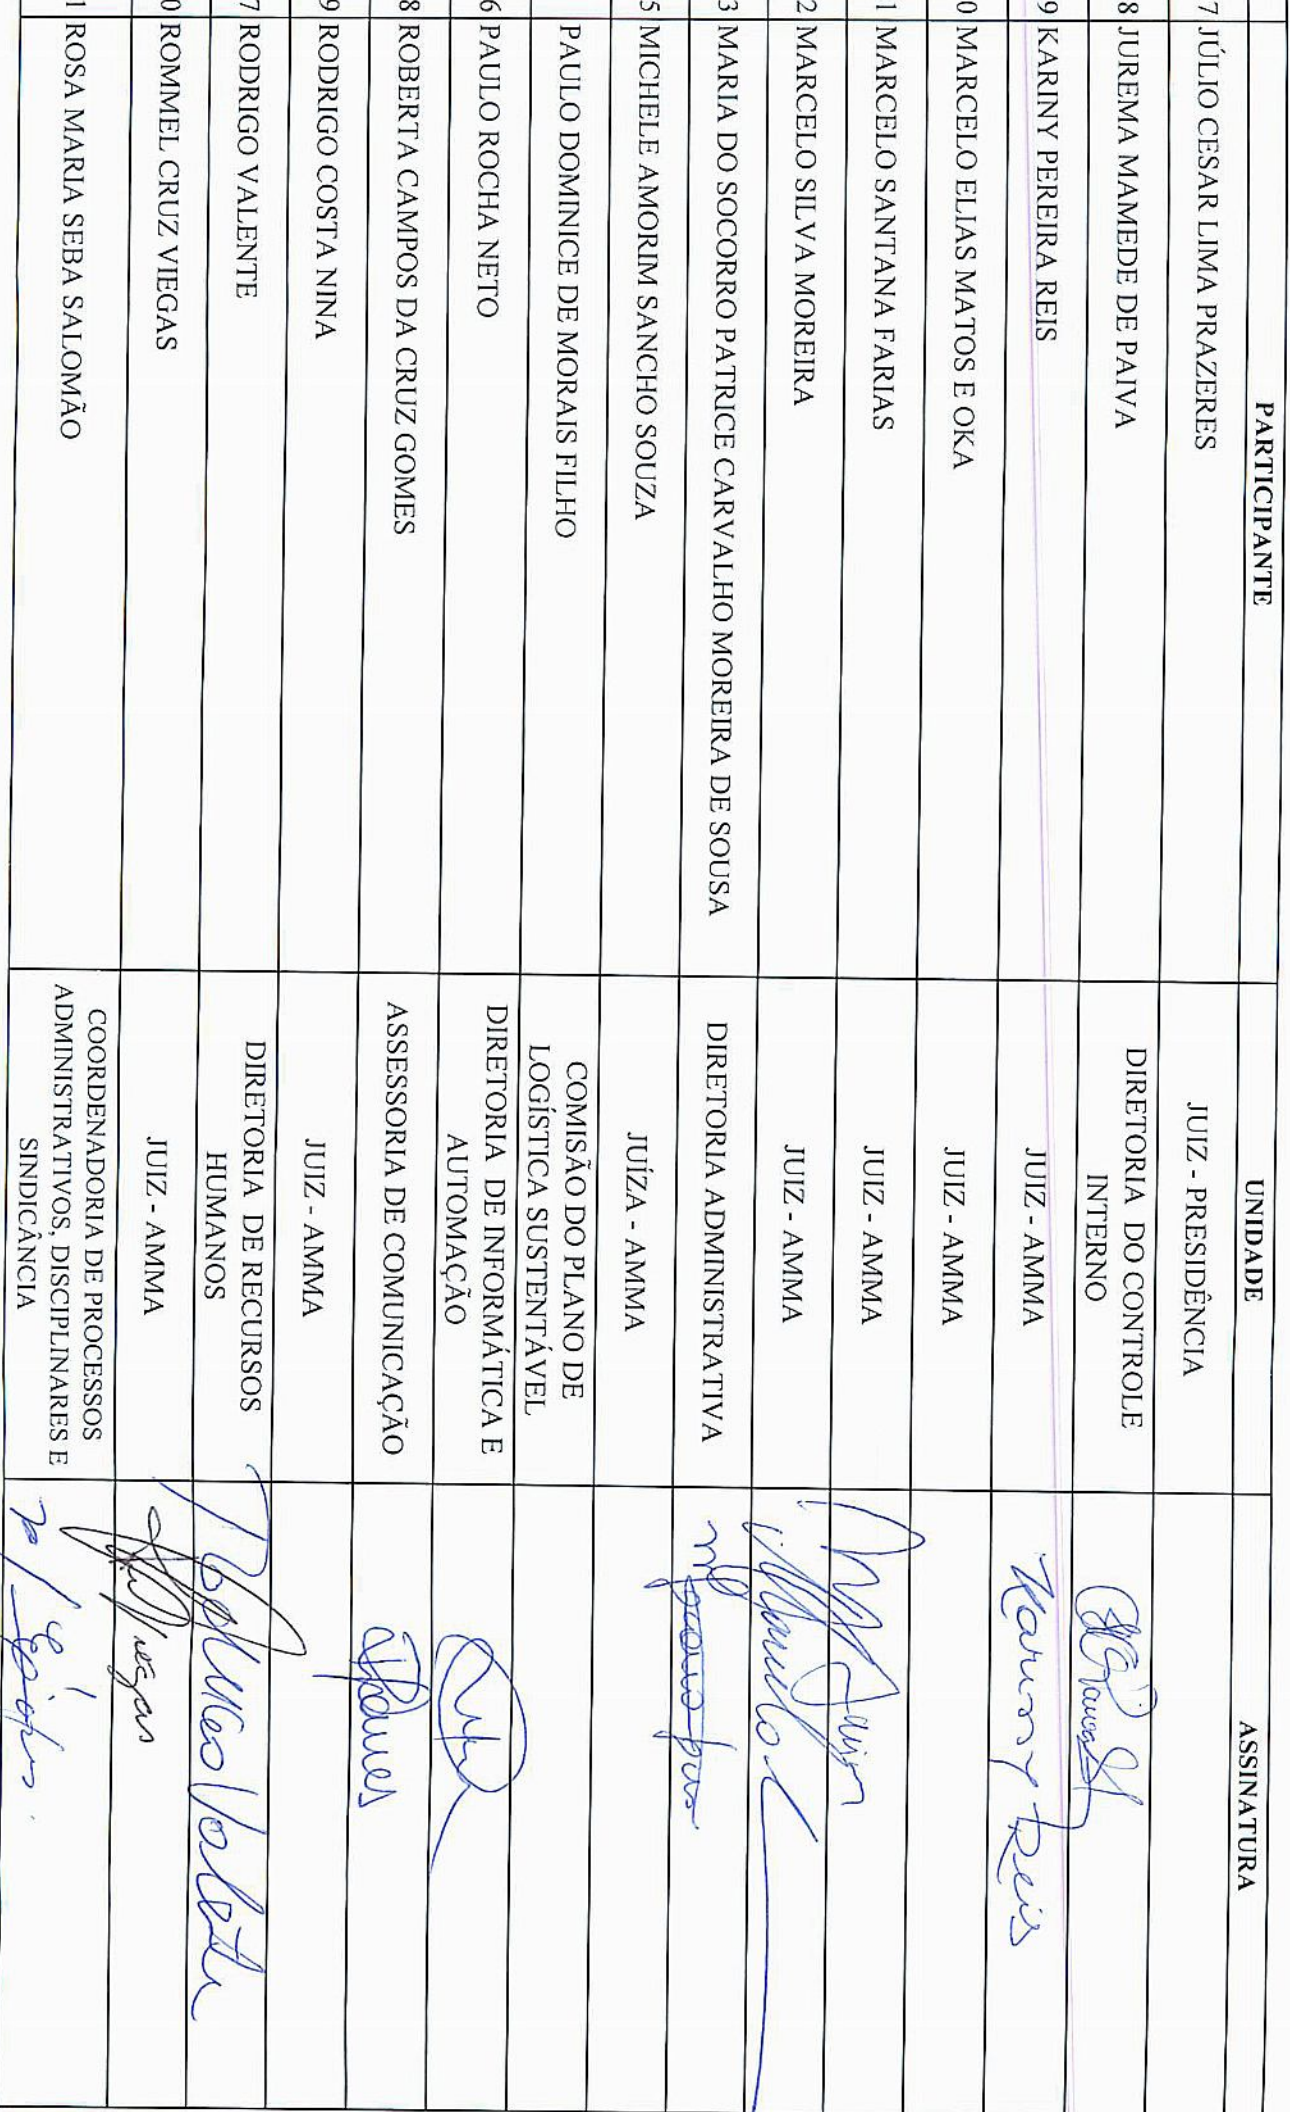 PARTICIPANTE UNIDADE ASSINATURA
7 JÚLIO CESAR LIMA PRAZERES JUIZ - PRESIDÊNCIA
8 JUREMA MAMEDE DE PAIVA DIRETORIA DO CONTROLE
INTERNO
9 KARINY PEREIRA REIS JUIZ - AMMA Kariny Reis
0 MARCELO ELIAS MATOS E OKA JUIZ - AMMA
1 MARCELO SANTANA FARIAS JUIZ - AMMA
2 MARCELO SILVA MOREIRA JUIZ - AMMA
3 MARIA DO SOCORRO PATRICE CARVALHO MOREIRA DE SOUSA DIRETORIA ADMINISTRATIVA
5 MICHELE AMORIM SANCHO SOUZA JUÍZA - AMMA
PAULO DOMINICE DE MORAIS FILHO COMISÃO DO PLANO DE
LOGÍSTICA SUSTENTÁVEL
6 PAULO ROCHA NETO DIRETORIA DE INFORMÁTICA E
AUTOMAÇÃO
8 ROBERTA CAMPOS DA CRUZ GOMES ASSESSORIA DE COMUNICAÇÃO
9 RODRIGO COSTA NINA JUIZ - AMMA
7 RODRIGO VALENTE DIRETORIA DE RECURSOS
HUMANOS
0 ROMMEL CRUZ VIEGAS JUIZ - AMMA Viegas
1 ROSA MARIA SEBA SALOMÃO COORDENADORIA DE PROCESSOS
ADMINISTRATIVOS, DISCIPLINARES E
SINDICÂNCIA